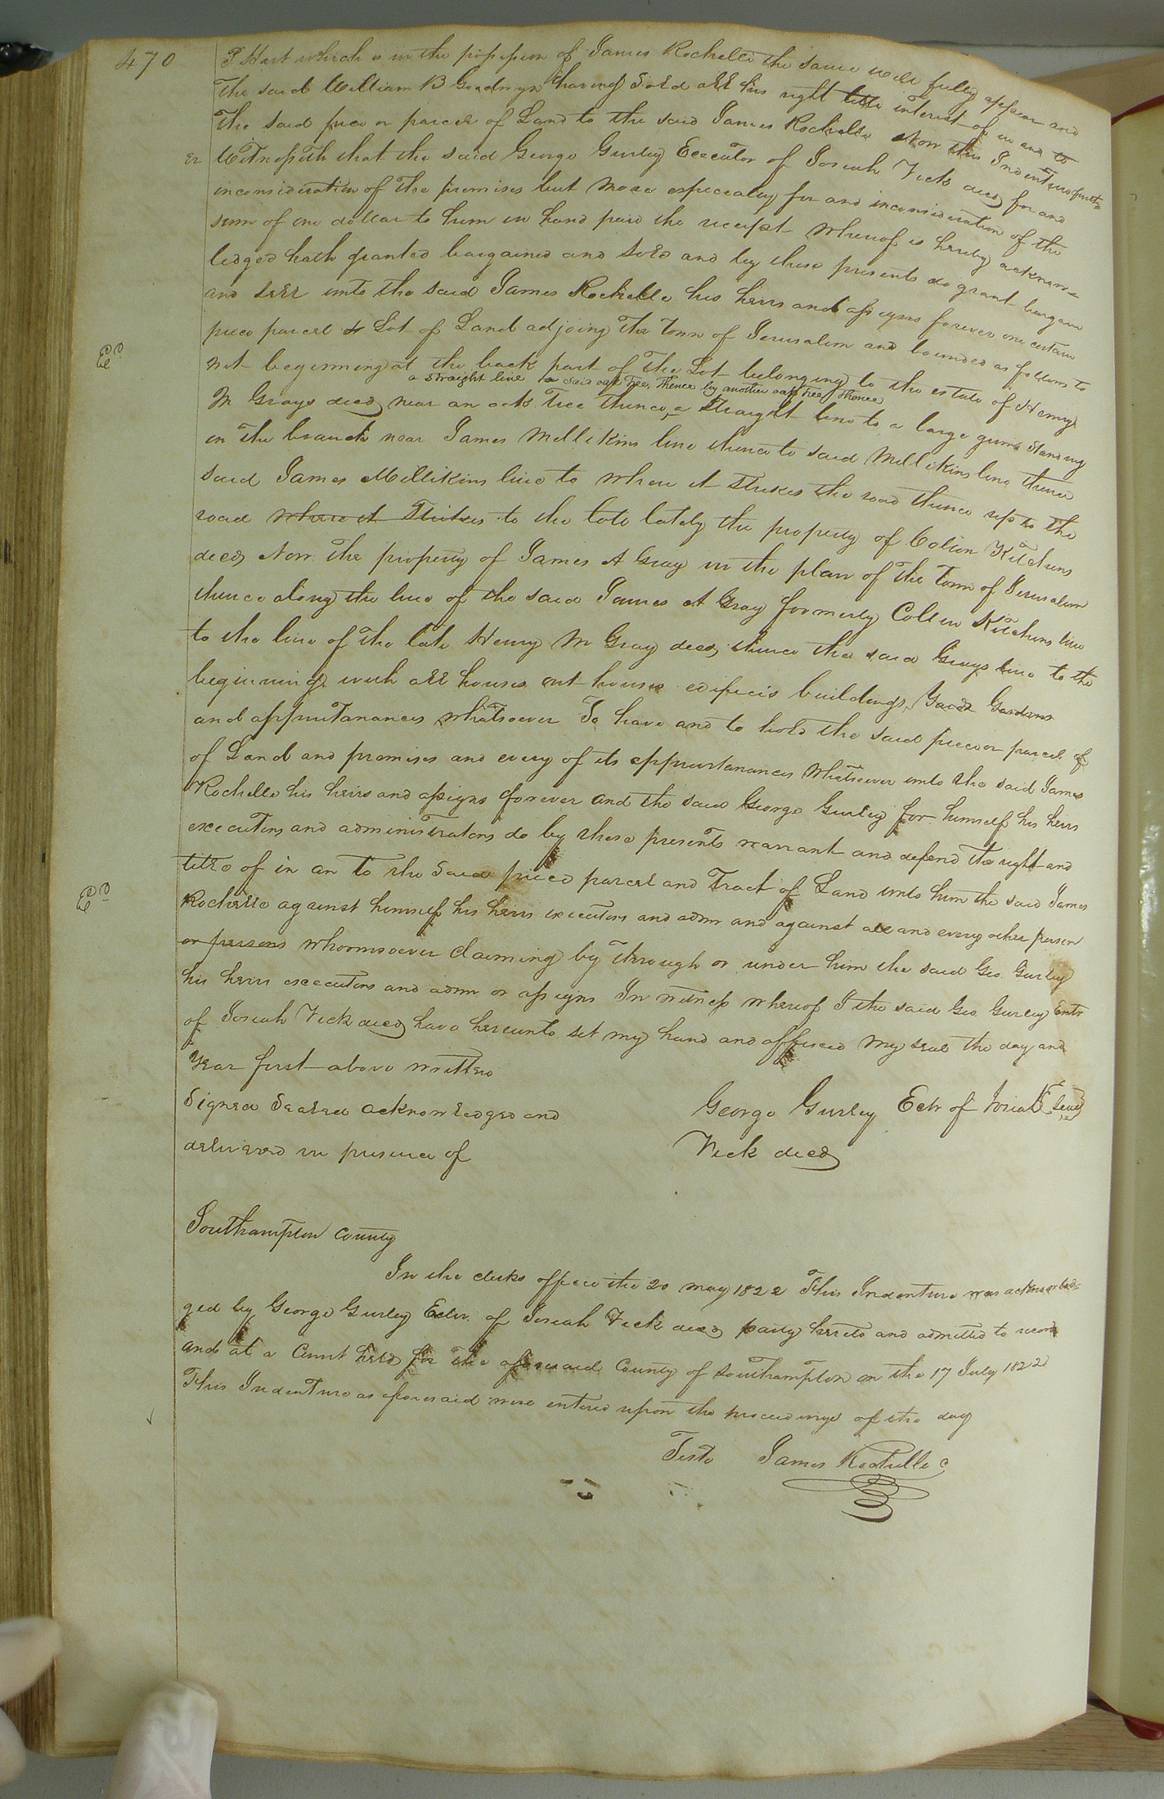 470
T Hart which is in the possession of James Rochelle the same will fully appear and
The said William B Goodwyn having Sold all his right title interest of in and to
The said piece or parcel of Land to the said James Rochelle Now this Indenture further
Witnesseth that the said George Gurley Executor of Josiah Vick decd for and
inconsideration of the premises but more especialey for and inconsideration of the
sum of one dollar to him in hand paid the receipt whereof is hereby acknow
ledged hath granted bargained and Sold and by these presents do grant bargain
and sell unto the said James Rochelle his heirs and assigns forever one certain
piece parcel or Lot of Land adjoing The Town of Jerusalem and bounded as follows to
wit beginning at the back part of the Lot belonging to the estate of Henry
a straight line to said oak tree, Thence by another oak tree thence
M Grays decd near an oak Tree thence a Straight line to a large gum Standing
in the branch near James Millikins line thence to said Millikins line thence
said James Millikins line to where it strikes the road thence up to the
road where it Strikes to the lots lately the property of Colion Kitchens
decd Now the property of James A Gray in the plan of the Town of Jerusalem
thence along the line of the said James A Gray formerly Collin Kitchens line
to the line of the late Henry M Gray decd thence the said Grays line to the
beginning with all houses out houses edifecis buildings, Yards Gardens
and appurtanances whatsoever To have and to hold the said piece or parcel of
of Land and promises and every of its appurtanances Whatsoever unto the said James
Rochelle his heirs and assigns forever and the said George Gurley for himself his heirs
executors and administrators do by these presents warrant and defend the right and
title of in an to the said piece parcel and Tract of Land unto him the said James
Rochelle against himself his heirs executors and admr and against all and every other person
or persons whomsoever claiming by Through or under him the said Geo Gurley
his heirs executors and admr or assigns In witness whereof I the said Geo Gurley Exetr
of Josiah Vick decd have hereunto set my hand and affixed my seal the day and
Year first above written
Signed Sealed acknowledged and
George Gurley Exetr of Josiah Seal
delivered in presence of
Vick decd
Southampton County
In the clerks office the 20 may 1822 This Indenture was acknowled-
ged by George Gurley Exetr of Josiah Vick decd party hereto and admitted to record
and at a Court held for the aforesaid County of Southampton on the 17 July 1822
This Indenture as aforesaid were entered upon the proceedings of the day
Teste James Rochelle C